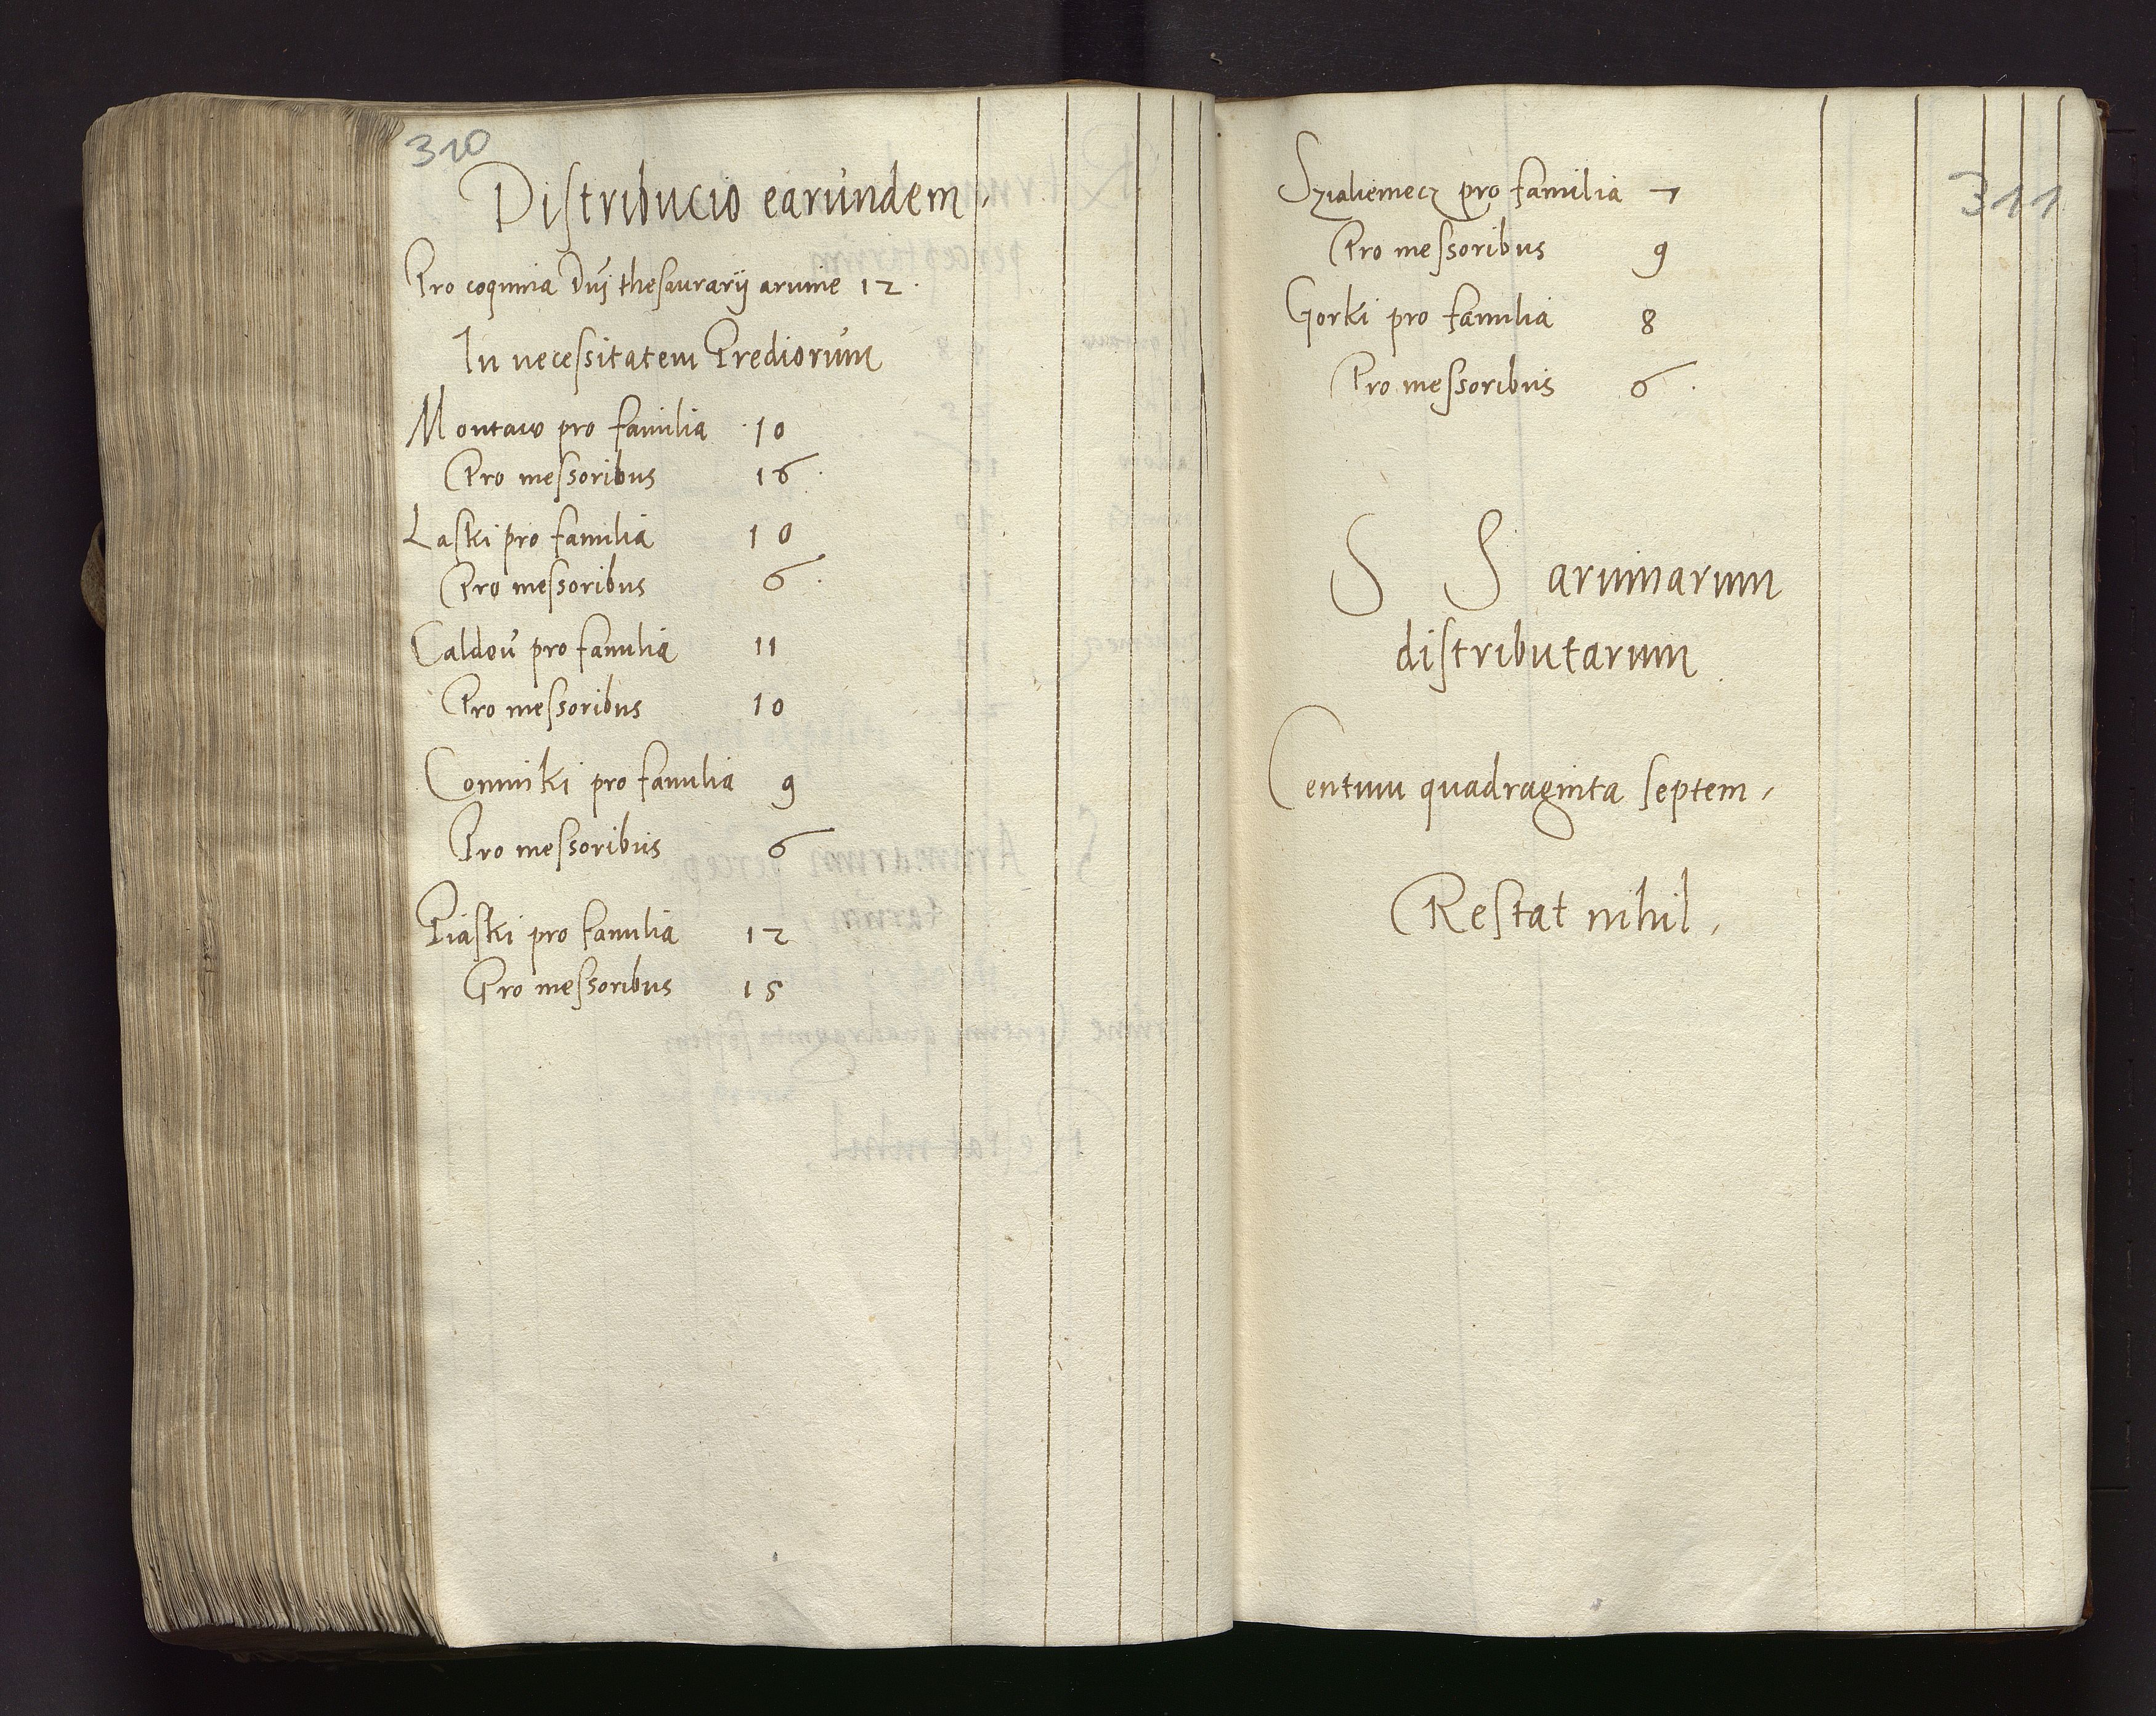 310
Distribucio earundem
Pro coquina Dni thesaurarij aruine 12
In necessitatem Prediorum
Montaw pro familia 10
Pro messoribus 16
Laski pro familia 10
Pro messoribus 6
Caldow pro familia 11
Pro messoribus 10
Commiki pro familia 9
Pro messoribus 6
Piaski pro familia 12
Pro messoribus 15
311
Szialiemecz pro familia 7
Pro messoribus 9
Gorki pro familia 8
Pro messoribus 6
S S aruinarum
distributarum
Centum quadraginta septem
Restat nihil